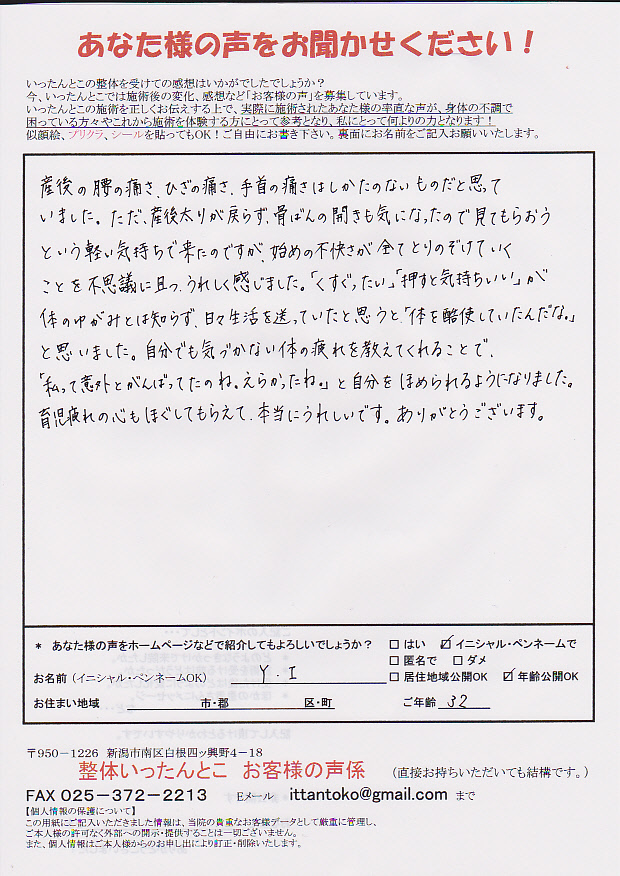 あなた様の声をお聞かせください！
いったんとこの整体を受けての感想はいかがでしたでしょうか？
今、いったんとこでは施術後の変化、感想など「お客様の声」を募集しています。
いったんとこの施術を正しくお伝えする上で、実際に施術されたあなた様の率直な声が、身体の不調で
困っている方々やこれから施術を体験する方にとって参考となり、私にとって何よりの力となります！
似顔絵、プリクラ、シールを貼ってもOK！ご自由にお書き下さい。裏面にお名前をご記入お願いいたします。
産後の腰の痛さ、ひざの痛さ、手首の痛さはしかたのないものだと思って
いました。ただ、産後太りが戻らず、骨ばんの開きも気になったので見てもらおう
という軽い気持ちで来たのですが、始めの不快さが全てとりのぞけていく
ことを不思議に且つ、うれしく感じました。「くすぐったい」「押すと気持ちいい」が
体のゆがみとは知らず、日々生活を送っていたと思うと、「体を酷使していたんだな。」
と思いました。自分でも気づかない体の疲れを教えてくれることで、
「私って意外とがんばってたのね。えらかったね。」と自分をほめられるようになりました。
育児疲れの心もほぐしてもらえて、本当にうれしいです。ありがとうございます。
* あなた様の声をホームページなどで紹介してもよろしいでしょうか？ □ はい ☑ イニシャル・ペンネームで
□ 匿名で □ ダメ
お名前（イニシャル・ペンネームOK） Y・I □ 居住地域公開OK ☑ 年齢公開OK
お住まい地域 市・郡 区・町 ご年齢 32
〒950－1226 新潟市南区白根四ッ興野4－18
整体いったんとこ お客様の声係 （直接お持ちいただいても結構です。）
FAX 025－372－2213 Eメール ittantoko@gmail.com まで
【個人情報の保護について】
この用紙にご記入いただきました情報は、当院の貴重なお客様データとして厳重に管理し、
ご本人様の許可なく外部への開示・提供することは一切ございません。
また、個人情報はご本人様からのお申し出により訂正・削除いたします。